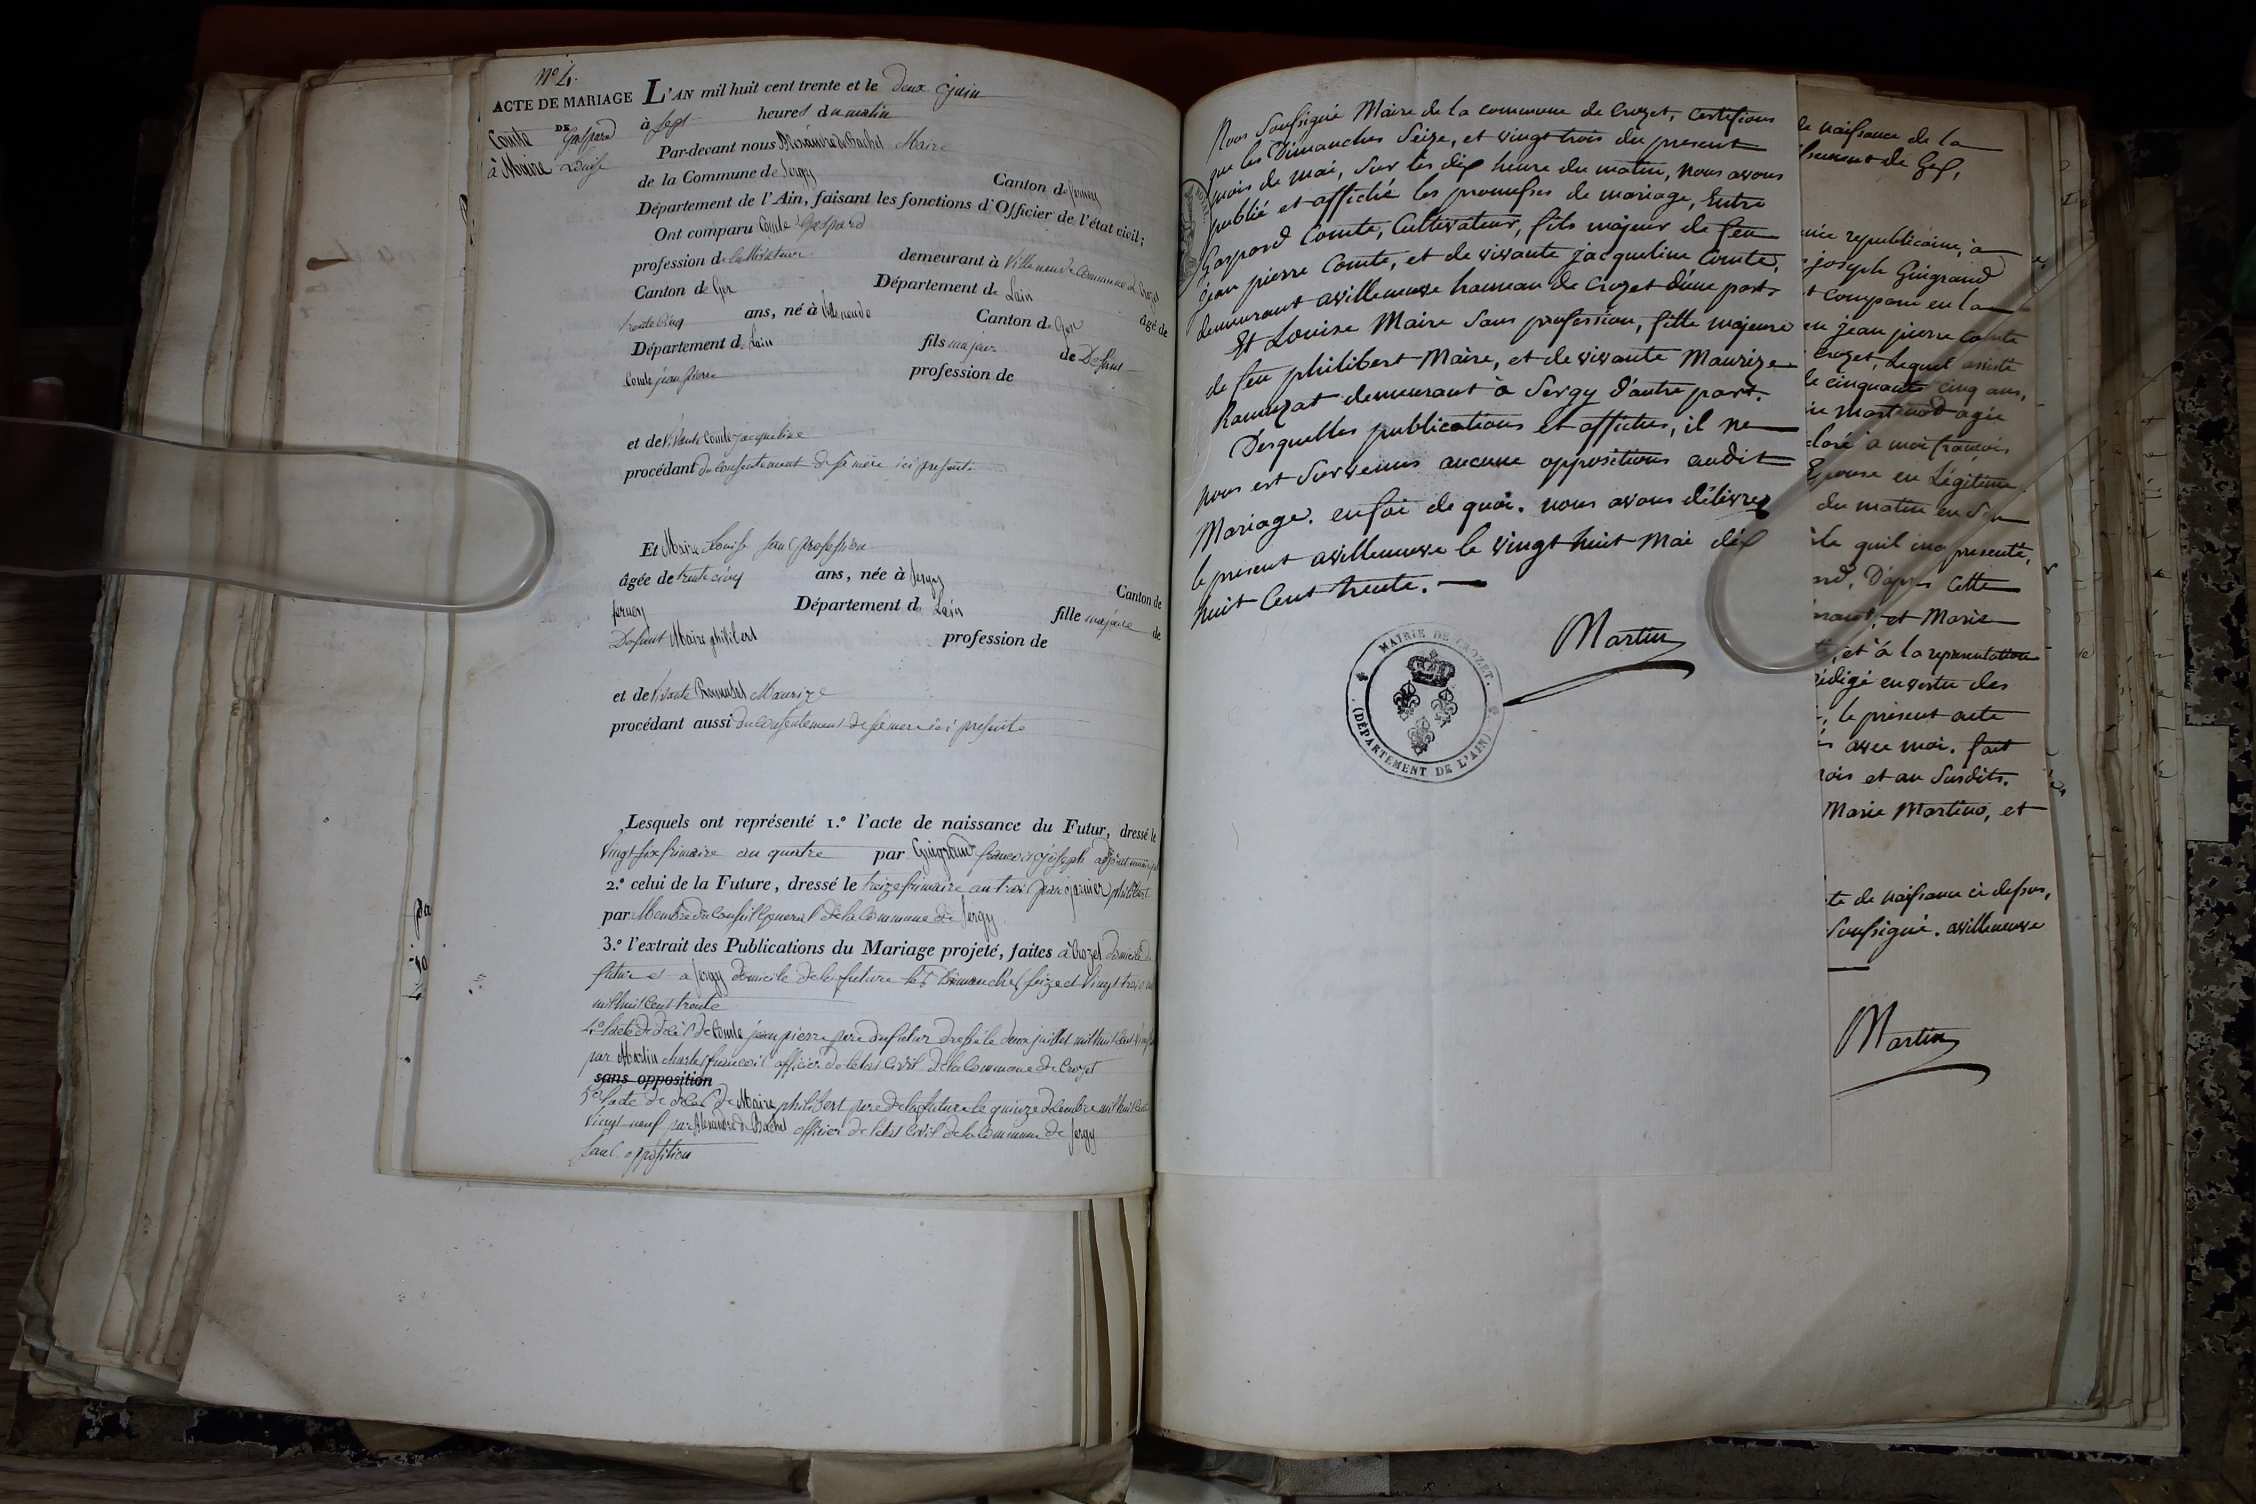 N.º 4.
ACTE DE MARIAGE
DE
Comte Gaspard
à Maire Louise
L'AN mil huit cent trente et le deux juin
à sept heures du matin
Par-devant nous Alexandre de Bachet Maire
de la Commune de Sergy Canton de ferney
Département de l'Ain, faisant les fonctions d'Officier de l'état civil;
Ont comparu Comte Gaspard
profession de Cultivateur demeurant à Villeneuve Commune de Crozet
Canton de Gex Département de Lain âgé de
trente cinq ans, né à Villeneuve Canton de Gex
Département de Lain fils majeur de Defunt
Comte jean pierre profession de
et de vivante Comte jacqueline
procédant du consentement de sa mère ici présente
Et Maire Louise sans profession
âgée de trente cinq ans, née à Sergy Canton de
ferney Département de Lain fille majeure de
Defunt Maire philibert profession de
et de vivante Ramuzat Maurize
procédant aussi du consentement de sa mere ici presente
Lesquels ont représenté 1.º l'acte de naissance du Futur, dressé le
vingt six frimaire an quatre par Guigrand françois joseph adjoint municipal
2.º celui de la Future, dressé le treize frimaire an trois par garnier philibert
par Membre du Conseil general de la Commune de Sergy
3.º l'extrait des Publications du Mariage projeté, faites à Crozet domicile du
futur et a Sergy domicile de la future les dimanches seize et vingt trois mai
mil huit cent trente
4.º l'acte de décès de Comte jean pierre pere du futur dressé le deux juillet mil huit cent
par Martin charles françois officier de letat civil de la Commune de Crozet
sans opposition
5.º l'acte de décès de Maire philibert pere de la future le quinze décembre mil huit cent
vingt-neuf par Alexandre de Bachet officier de l'etat civil de la Commune de Sergy
sans opposition
Nous soussigné Maire de la commune de Crozet, certifions
que les Dimanches seize, et vingt trois du present
mois de mai, sur les dix heure du matin, nous avons
publié et affiché les promesses de mariage, entre
Gaspard Comte, Cultivateur, fils majeur de feu
jean pierre Comte, et de vivante jacqueline Comte,
demeurant avilleneuve hameau de Crozet d'une part
Et Louise Maire sans profession, fille majeure
de feu philibert Maire, et de vivante Maurize
Ramuzat demeurant à Sergy d'autre part.
Desquelles publications et affiches, il ne
nous est survenus aucune oppositions audit
Mariage. en foi de quoi. nous avons délivrez
le present avilleneuve le vingt huit mai dix
huit Cent trente.
Martin
MAIRIE DE CROZET.
(DÉPARTEMENT DE L'AIN)
de naissance de la
republicaine, à
joseph Guigrand
et comparu en la
jean pierre Comte
Crozet, lequel assisté
de cinquante cinq ans,
Martinod agée
à moi françois
Epouse en Légitime
du matin en son
quil ma presenté,
D'après cette
et Marie
et à la representation
rédigé en vertu des
le présent acte
avec moi. fait
mois et an susdits.
Marie Martinod, et
de naissance ci dessus,
soussigné. avilleneuve
Martin